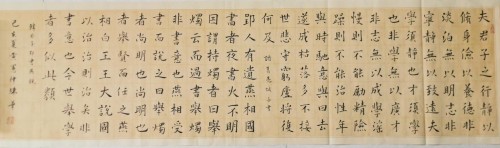 夫君子之行靜以
脩身儉以養德非
淡泊無以明志非
寧靜無以致遠夫
學須靜也才須學
也非學無以廣才
非志無以成學淫
慢則不能勵精險
躁則不能治性年
與時馳意與日去
遂成枯落多不接
世悲守窮廬將復
何及
諸葛亮誡子書
郢人有遺燕相國
書者夜書火不明
因謂持燭者曰舉
燭云而過書舉燭
舉燭非書意也燕相受
書而說之曰舉燭
者尚明也尚明也
者舉賢而任之燕
相白王王大說國
以治治則治矣非
書意也今世舉學
者多似此類
韓非子郢書燕說
己亥夏